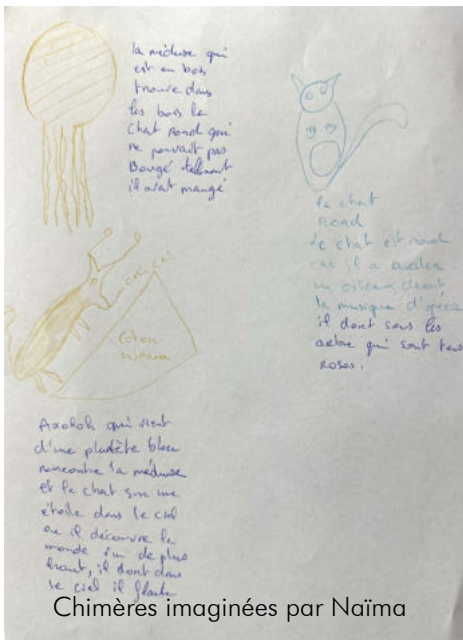 la méduse qui
est en bois
trouve dans
les bois le
chat rond qui
ne pouvait pas
Bougé tellment
il avait mangé
le chat
Rond
Le chat est rond
car il a avaler
un oiseau
la musique d'opéra
il dort sous les
arbre qui sont tous
roses.
cricri
coton
Axolotl qui vient
d'une planète bleu
rencontre la méduse
et le chat sur une
étoile dans le ciel
ou il découvre le
monde d'un de plus
haut, il dort dans
le ciel il flotte
Chimères imaginées par Naïma